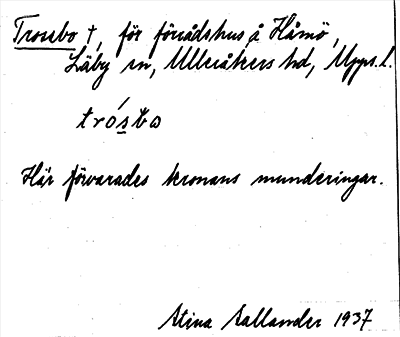 Trossbo †, för förrådshus å Håmö,
Läby sn, Ulleråkers hd, Upps. l.
trósbo
Här förvarades kronans munderingar.
Stina Sallander 1937